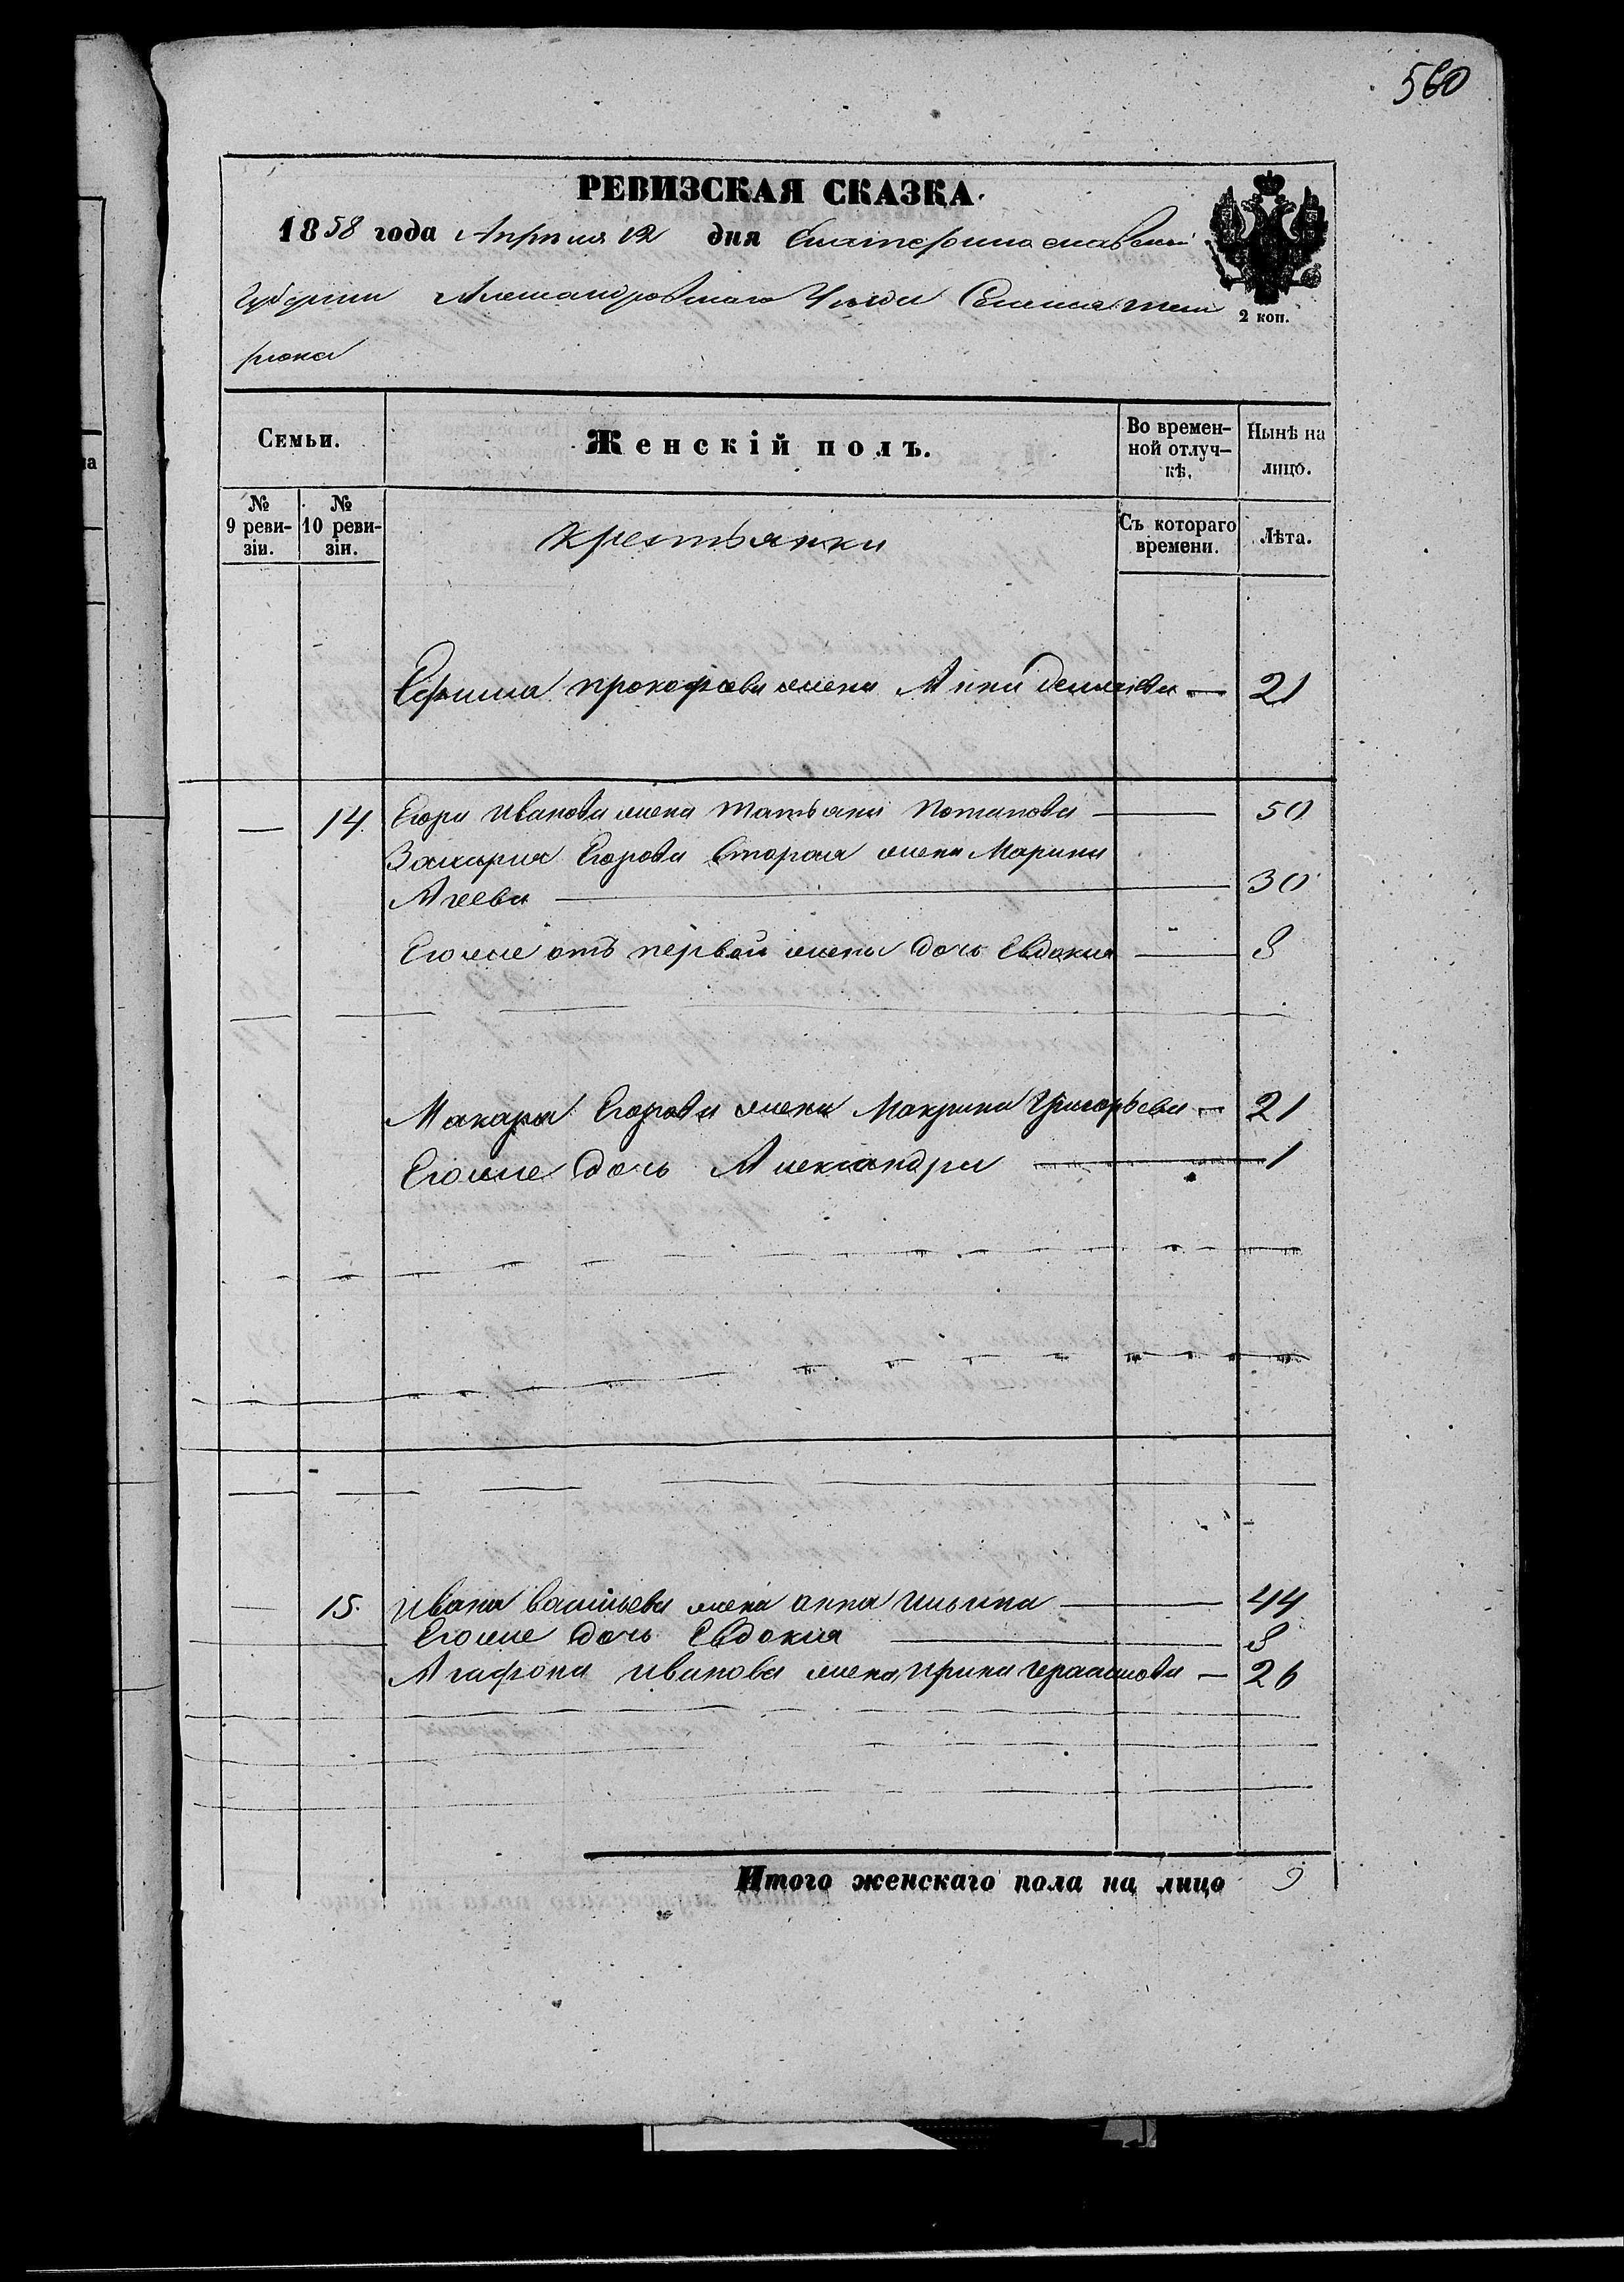 560
РЕВИЗСКАЯ СКАЗКА.
1858 года Апреля 12 дня Екатеринославской
Губернии Александровскаго Уезда Селенія Тем
рюка
2 коп.
Семьи.
Женскій полъ.
Во времен-
ной отлуч-
кѣ.
Нынѣ на
лицо.
№
9 реви-
зіи.
№
10 реви-
зіи.
Крестьянки
Съ котораго
времени.
Лѣта.
Ефима Прокофьева жена Анна — 21
— 14. Егора Иванова жена Татьяна Потапова — 50
Захарія Егорова вторая жена Марина
Агеева — 30
Его же отъ первой жены дочь Евдокия — 8
Макара Егорова жена Макрина Григорьева — 21
Его же дочь Александра — 1
— 15. Ивана Васильева жена Анна Ильина — 44
Его же дочь Евдокия — 8
Агафона Иванова жена Ирина Герасимова — 26
Итого женскаго пола на лицо 9